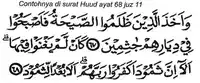 Contohnya di surat Huud ayat 68 juz 11
وَأَخَذَ الَّذِينَ ظَلَمُوا الصَّيْحَةُ فَأَصْبَحُوا
فِي دِيَارِهِمْ جَاثِمِينَ كَأَنْ لَمْ يَغْنَوْا فِيهَا
أَلَا إِنَّ ثَمُودَا كَفَرُوا رَبَّهُمْ أَلَا بُعْدًا لِثَمُودَ